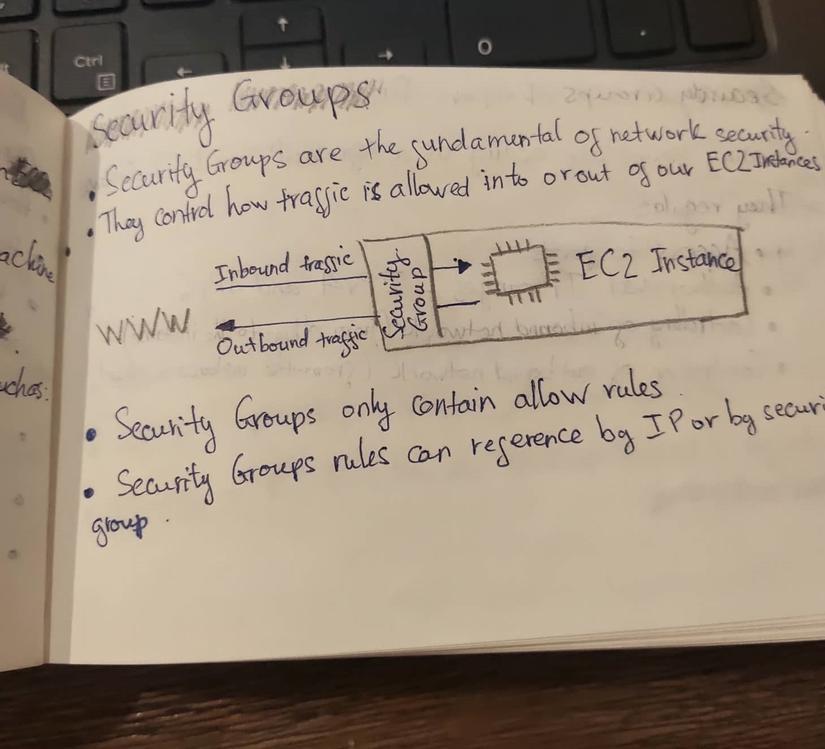 Ctrl
Security Groups
• Security Groups are the fundamental of network security.
• They control how traffic is allowed into or out of our EC2 Instances
achine
Inbound traffic
Security Group
EC2 Instance
WWW
Outbound traffic
uchas:
• Security Groups only contain allow rules.
• Security Groups rules can reference by IP or by securi
group.